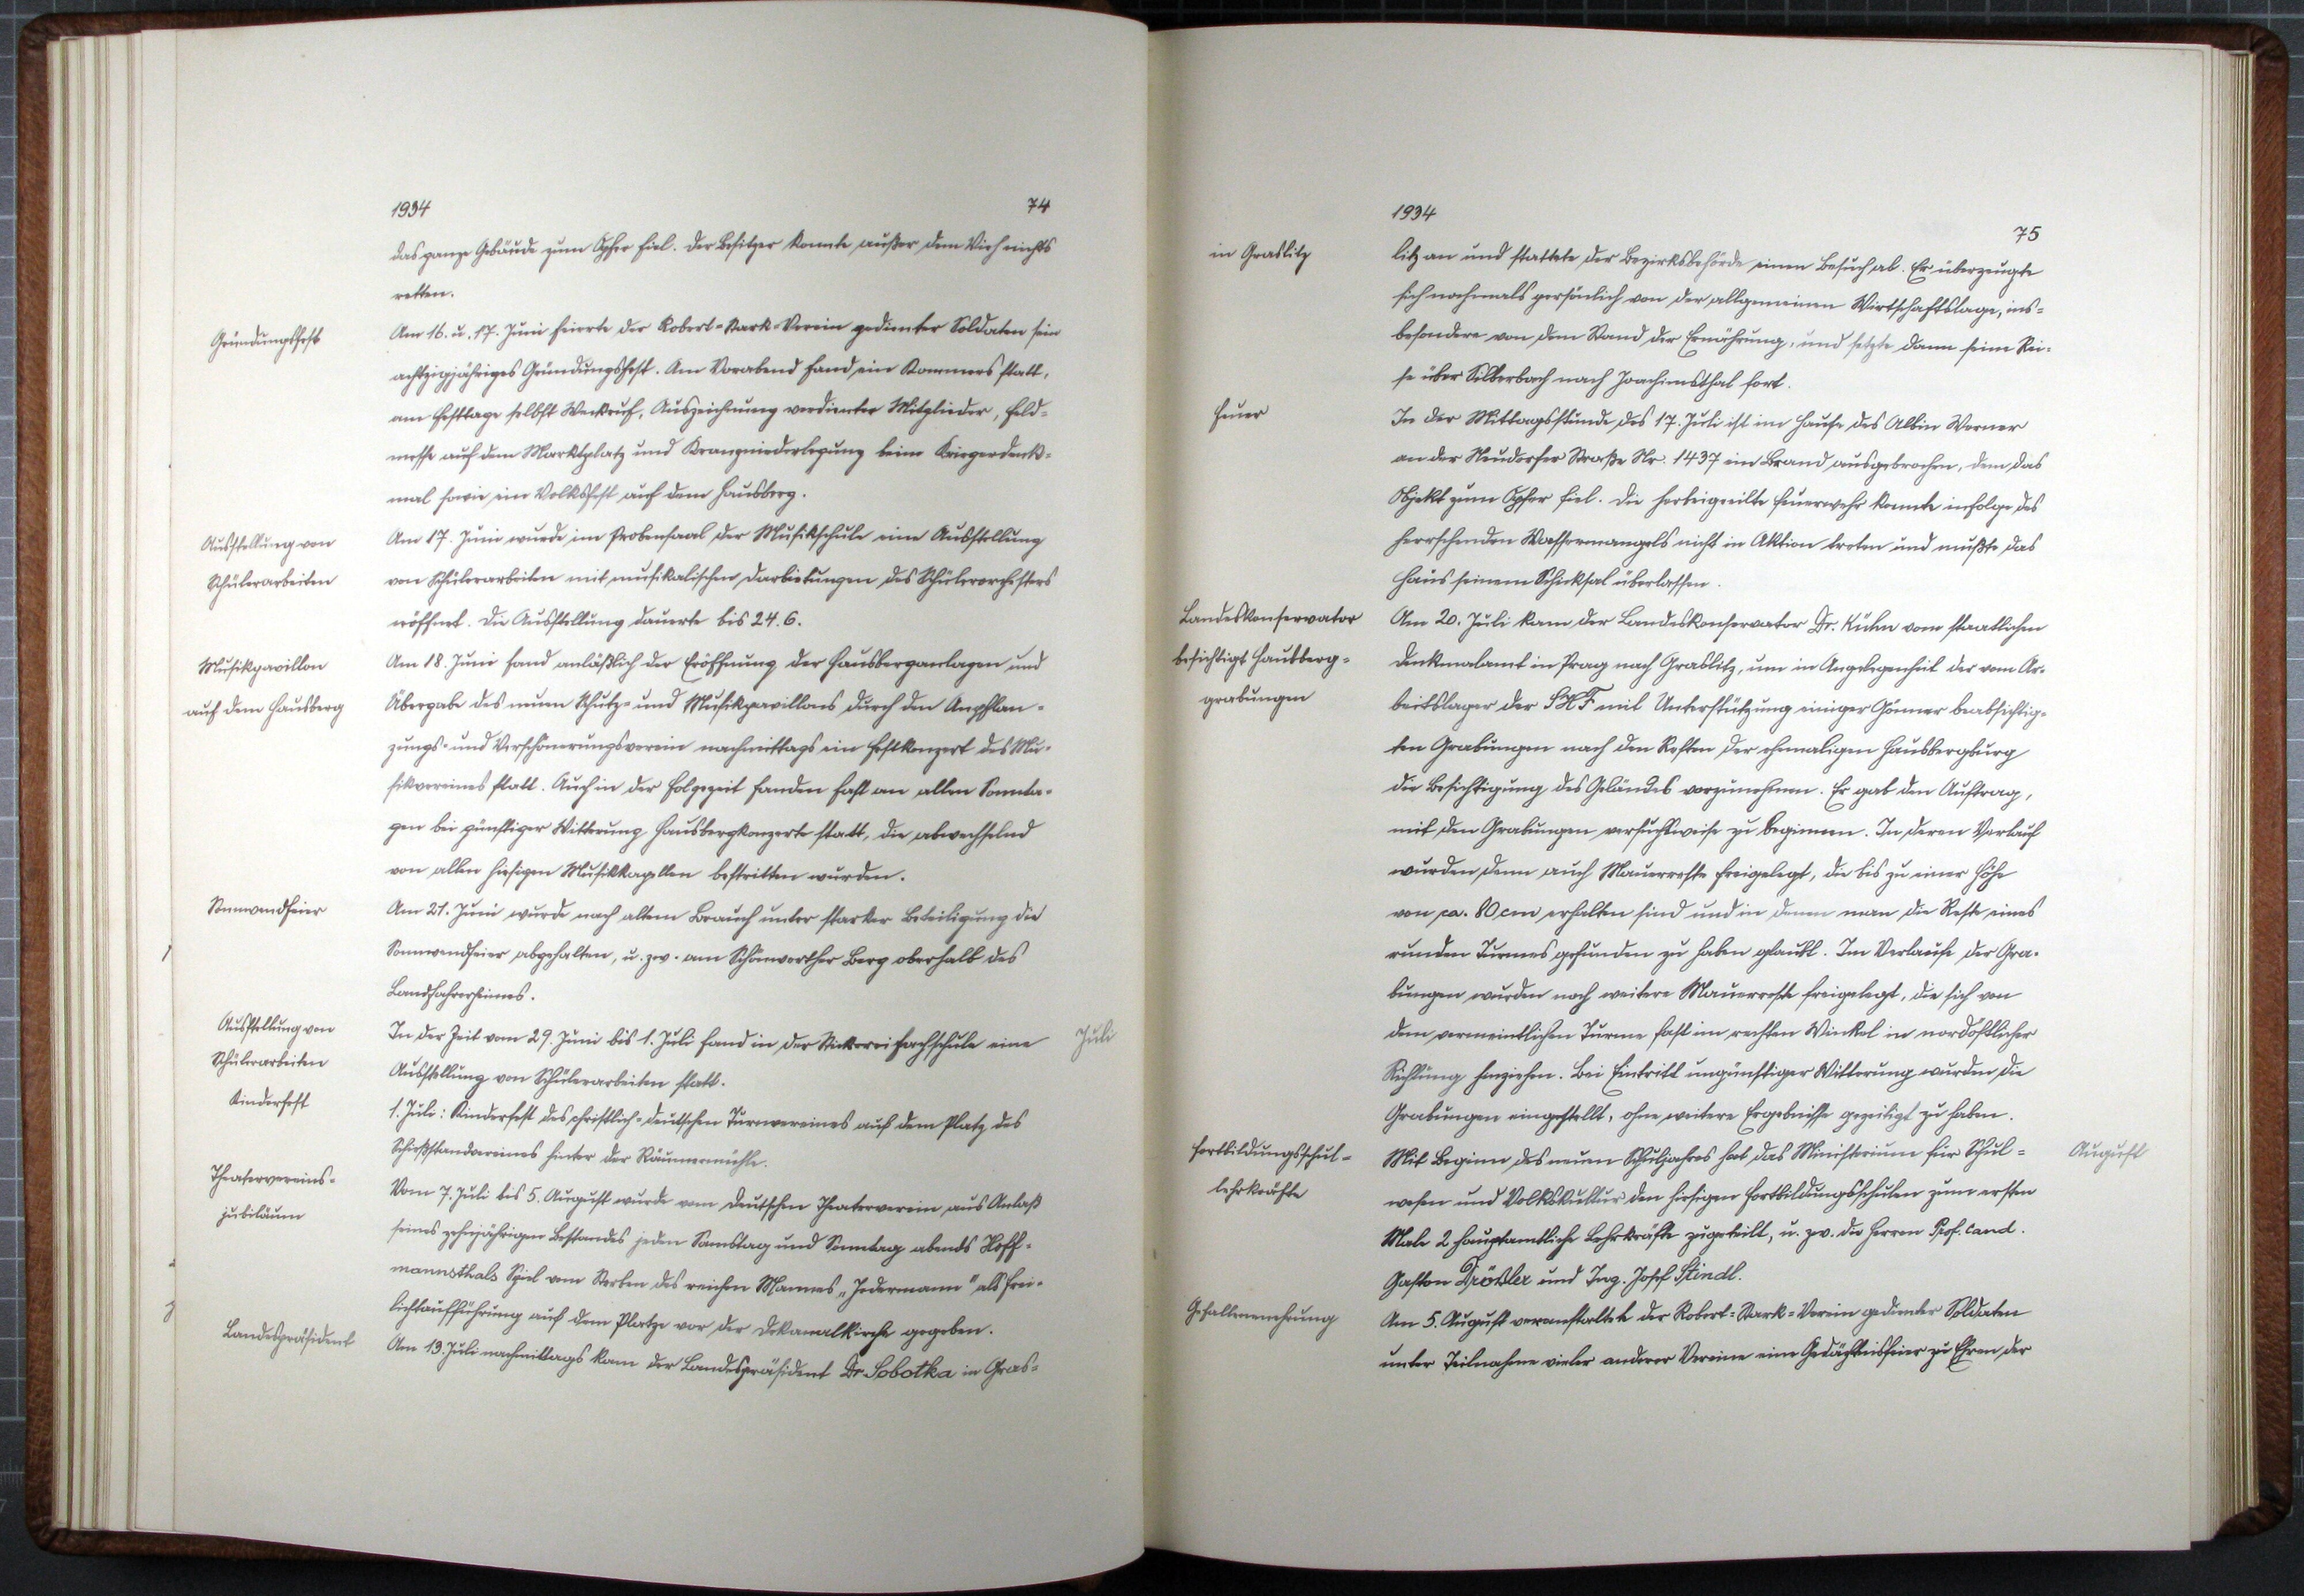 1934
74
das ganze Gebäude zum Opfer fiel. Der Besitzer konnte außer dem Vieh nichts
retten.
Gründungsfest
Am 16. u. 17. Juni feierte der Robert=Stark=Verein gedienter Soldaten sein
achtzigjähriges Gründungsfest. Am Vorabend fand ein Kommers statt,
am Festtage selbst Weckruf, Auszeichnung verdienter Mitglieder, Feld=
messe auf dem Marktplatz und Kranzniederlegung beim Kriegerdenk=
mal sowie ein Volksfest auf dem Hausberg.
Ausstellung von
Schülerarbeiten
Am 17. Juni wurde im Probensaal der Musikschule eine Ausstellung
von Schülerarbeiten mit musikalischen Darbietungen des Schülerorchesters
eröffnet. Die Ausstellung dauerte bis 24.6.
Musikpavillon
auf dem Hausberg
Am 18. Juni fand anläßlich der Eröffnung der Hausberganlagen und
Übergabe des neuen Schutz= und Musikpavillons durch den Anpflan=
zungs= und Verschönerungsverein nachmittags ein Festkonzert des Mu=
sikvereines statt. Auch in der Folgezeit fanden fast an allen Sonnta=
gen bei günstiger Witterung Hausbergkonzerte statt, die abwechselnd
von allen hiesigen Musikkapellen bestritten wurden.
Sonnwendfeier
Am 21. Juni wurde nach altem Brauch unter starker Beteiligung die
Sonnwendfeier abgehalten, u. zw. am Schönwerther Berg oberhalb des
Landfahrerheimes.
Ausstellung von
Schülerarbeiten
In der Zeit vom 29. Juni bis 1. Juli fand in der Stickereifachschule eine
Juli
Ausstellung von Schülerarbeiten statt.
Kinderfest
1. Juli: Kinderfest des christlich=deutschen Turnvereines auf dem Platz des
Schießstandvereines hinter der Räumermühle.
Theatervereins=
jubiläum
Vom 7. Juli bis 5. August wurde vom Deutschen Theaterverein aus Anlaß
seines zehnjährigen Bestandes jeden Samstag und Sonntag abends Hoff=
mannsthals Spiel vom Sterben des reichen Mannes „Jedermann" als Frei=
lichtaufführung auf dem Platze vor der Dekanalkirche gegeben.
Landespräsident
Am 13. Juli nachmittags kam der Landespräsident Dr. Sobotka in Gras=
1934
75
in Graslitz
litz an und stattete der Bezirksbehörde einen Besuch ab. Er überzeugte
sich nochmals persönlich von der allgemeinen Wirtschaftslage, ins=
besondere von dem Stand der Ernährung, und setzte dann seine Rei=
se über Silberbach nach Joachimsthal fort.
Feuer
In der Mittagsstunde des 17. Juli ist im Hause des Albin Werner
an der Neudorfer Straße Nr. 1437 ein Brand ausgebrochen, dem das
Objekt zum Opfer fiel. Die herbeigeeilte Feuerwehr konnte infolge des
herrschenden Wassermangels nicht in Aktion treten und mußte das
Haus seinem Schicksal überlassen.
Landeskonservator
besichtigt Hausberg=
grabungen
Am 20. Juli kam der Landeskonservator Dr. Kühn vom staatlichen
Denkmalamt in Prag nach Graslitz, um in Angelegenheit der vom Ar=
beitslager der SHF mit Unterstützung einiger Gönner beabsichtig=
ten Grabungen nach den Resten der ehemaligen Hausbergburg
die Besichtigung des Geländes vorzunehmen. Er gab den Auftrag,
mit den Grabungen versuchsweise zu beginnen. In deren Verlauf
wurden denn auch Mauerreste freigelegt, die bis zu einer Höhe
von ca. 80 cm erhalten sind und in denen man die Reste eines
runden Turmes gefunden zu haben glaubt. Im Verlaufe der Gra=
bungen wurden noch weitere Mauerreste freigelegt, die sich von
dem vermeintlichen Turme fast im rechten Winkel in nordöstlicher
Richtung hinziehen. Bei Eintritt ungünstiger Witterung wurden die
Grabungen eingestellt, ohne weitere Ergebnisse gezeitigt zu haben.
Fortbildungsschul=
lehrkräfte
Mit Beginn des neuen Schuljahres hat das Ministerium für Schul=
August
wesen und Volkskultur den hiesigen Fortbildungsschulen zum ersten
Male 2 hauptamtliche Lehrkräfte zugeteilt, u. zw. die Herren Prof. Cand.
Gaston Drößler und Ing. Josef Stindl.
Gefallenenehrung
Am 5. August veranstaltete der Robert=Stark=Verein gedienter Soldaten
unter Teilnahme vieler anderer Vereine eine Gedächtnisfeier zu Ehren der